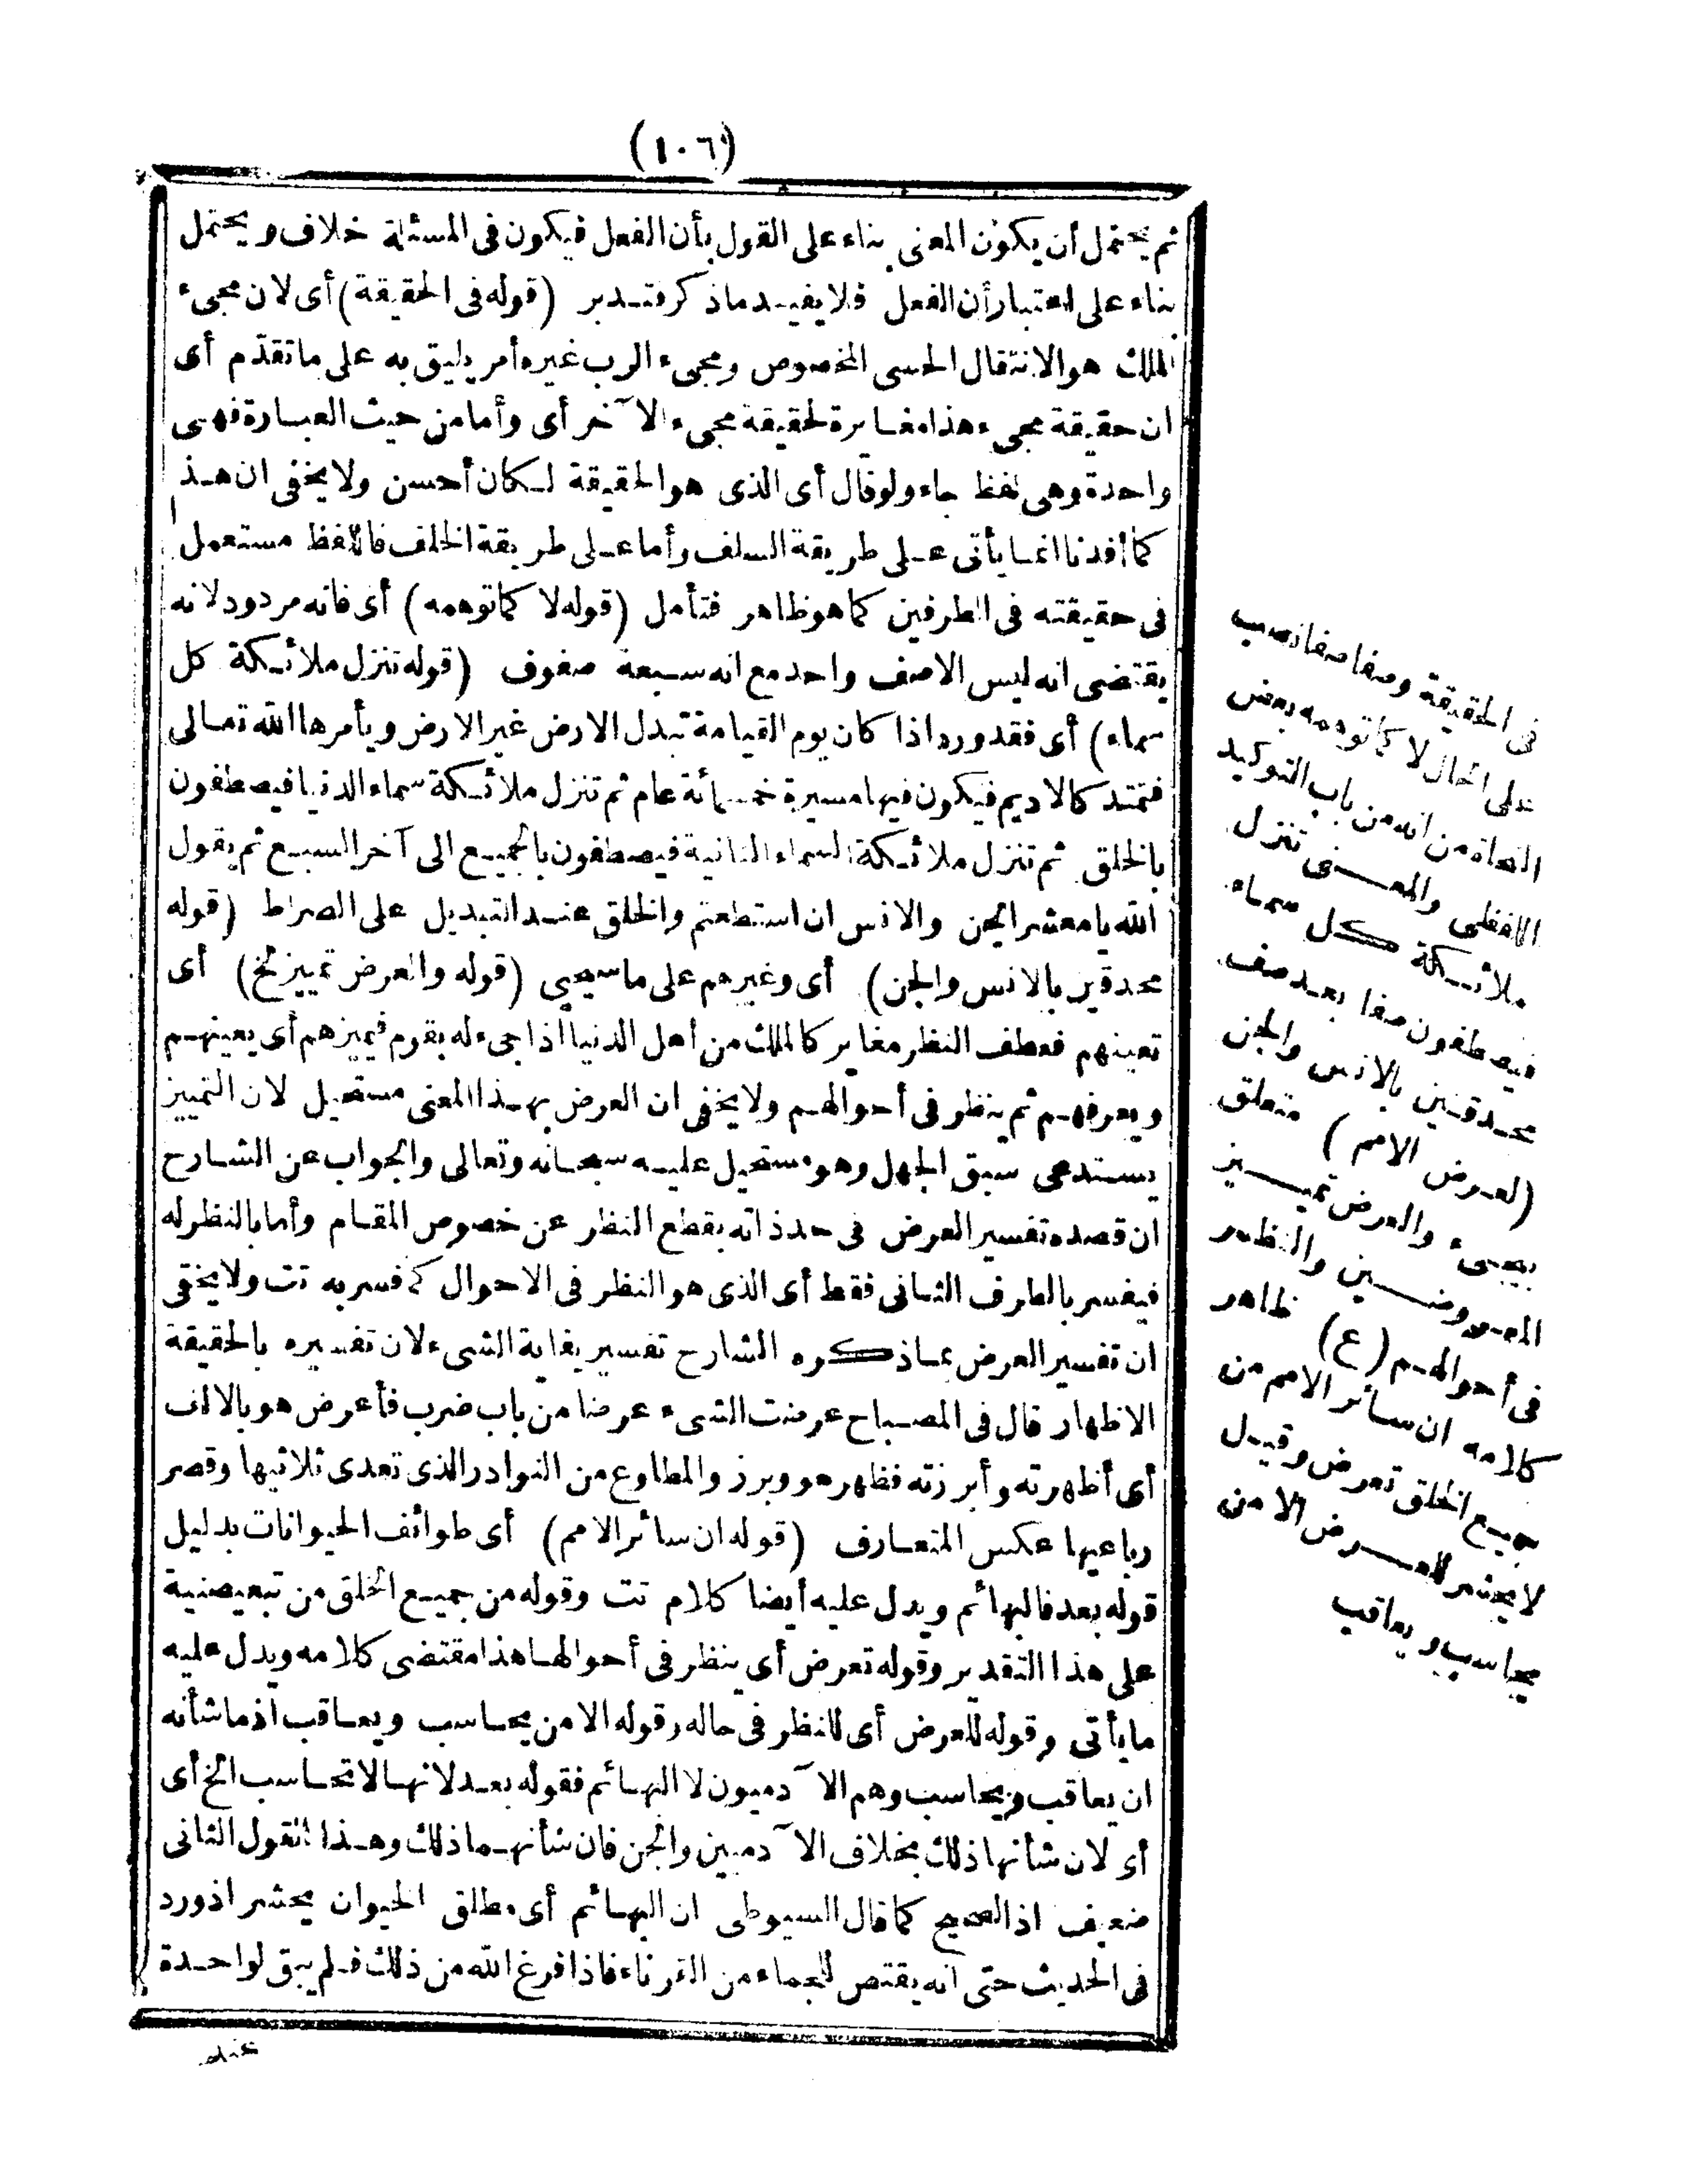 (١٠٦)
ثم يحتمل أن يكون المعنى بناء على القول بأن الفعل فيكون فى المسئلة خلاف ويحتمل
بناء على اعتبار أن الفعل فلا يفيد ماذكر فتدبر (قوله فى الحقيقة) أى لان مجىء
الملك هو الانتقال الحسى المخصوص ومجىء الرب غيره أمر يليق به على ما تقدّم أى
ان حقيقة مجىء هذا مغايرة لحقيقة مجىء الآخر أى وأما من حيث العبارة فهى
واحدة وهى لفظ جاء ولو قال أى الذى هو الحقيقة لكان أحسن ولا يخفى ان هذا
كما أفدنا انما يأتى على طريقة السلف وأما على طريقة الخلف فاللفظ مستعمل
فى حقيقته فى الطرفين كما هو ظاهر فتأمل (قوله لا كما توهمه) أى فانه مردود لانه
يقتضى انه ليس الاصف واحد مع انه سبعة صفوف (قوله تنزل ملائكة كل
سماء) أى فقد ورد اذا كان يوم القيامة تبدل الارض غير الارض ويأمرها الله تعالى
فتمتد كالاديم فيكون فيها مسيرة خمسمائة عام ثم تنزل ملائكة سماء الدنيا فيصطفون
بالخلق ثم تنزل ملائكة السماء الثانية فيصطفون بالجميع الى آخر السبع ثم يقول
الله يا معشر الجن والانس ان استطعتم والخلق عند التبديل على الصراط (قوله
محدقين بالانس والجن) أى وغيرهم على ما سيجىء (قوله والعرض تمييز الخ) أى
تعينهم فعطف النظر مغاير كالملك من أهل الدنيا اذا جىء له بقوم فيميزهم أى يعينهم
ويعرفهم ثم ينظر فى أحوالهم ولا يخفى ان العرض بهذا المعنى مستحيل لان التمييز
يستدعى سبق الجهل وهو مستحيل عليه سبحانه وتعالى والجواب عن الشارح
ان قصده تفسير العرض فى حد ذاته بقطع النظر عن خصوص المقام وأما بالنظر له
فيفسر بالطرف الثانى فقط أى الذى هو النظر فى الاحوال كما فسر به تت ولا يخفى
ان تفسير العرض بما ذكره الشارح تفسير بغاية الشىء لان تفسيره بالحقيقة
الاظهار قال فى المصباح عرضت الشىء عرضا من باب ضرب فأعرض هو بالالف
أى أظهرته وأبرزته فظهر هو وبرز والمطاوع من النوادر الذى تعدى ثلاثيها وقصر
رباعيها عكس المتعارف (قوله ان سائر الامم) أى طوائف الحيوانات بدليل
قوله بعد فالبهائم ويدل عليه أيضا كلام تت وقوله من جميع الخلق من تبعيضية
على هذا التقدير وقوله تعرض أى ينظر فى أحوالها هذا مقتضى كلامه ويدل عليه
ما يأتى وقوله للعرض أى للنظر فى حاله وقوله الا من يحاسب ويعاقب اذ ما شأنه
ان يعاقب ويحاسب وهم الآدميون لا البهائم فقوله بعد لانها لا تحاسب الخ أى
أى لان شأنها ذلك بخلاف الآدميين والجن فان شأنهما ذلك وهذا القول الثانى
ضعيف اذ الصحيح كما قال السيوطى ان البهائم أى مطلق الحيوان يحشر اذ ورد
فى الحديث حتى انه يقتص للجماء من القرناء فاذا فرغ الله من ذلك فلم يبق لواحدة
عند
فى الحقيقة وصفا صفا نصب
على الحال لا كما توهمه بعض
النحاة من انه من باب التوكيد
اللفظى والمعنى تنزل
ملائكة كل سماء
فيصطفون صفا بعد صف
محدقين بالانس والجن
(لعرض الامم) متعلق
بيجىء والعرض تمييز
المعروضين والنظر
فى أحوالهم (ع) ظاهر
كلامه ان سائر الامم من
جميع الخلق تعرض وقيل
لا يحشر للعرض الا من
يحاسب ويعاقب